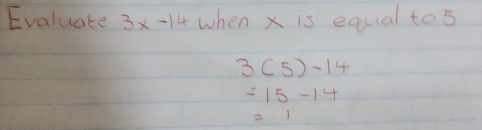 Evaluate 3x -14 when x is equal to 5
3(5)-14
=15 -14
= 1